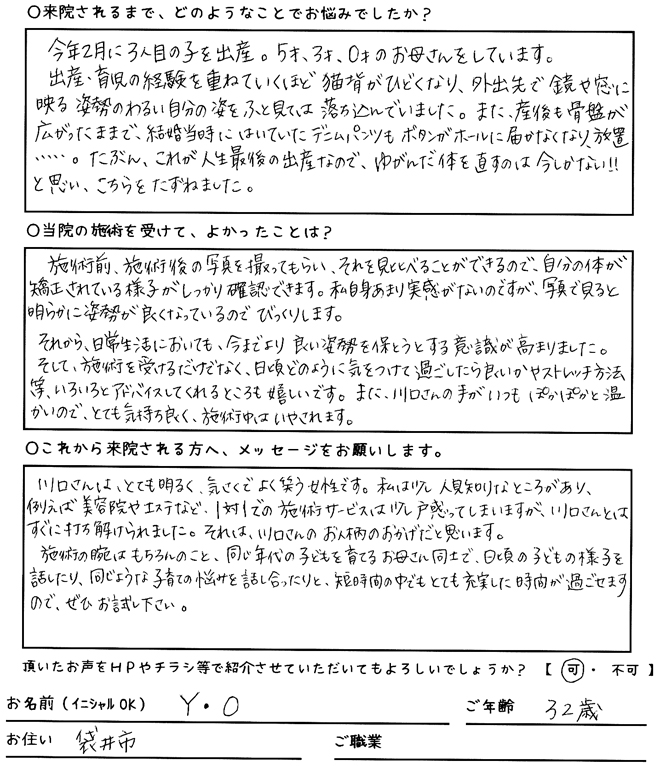 〇来院されるまで、どのようなことでお悩みでしたか？
今年2月に3人目の子を出産。5才、3才、0才のお母さんをしています。
出産・育児の経験を重ねていくほど猫背がひどくなり、外出先で鏡や窓に
映る姿勢のわるい自分の姿をふと見ては落ち込んでいました。また、産後も骨盤が
広がったままで、結婚当時にはいていたデニムパンツもボタンがホールに届かなくなり、放置
・・・・・。たぶん、これが人生最後の出産なので、ゆがんだ体を直すのは今しかない!!
と思い、こちらをたずねました。
〇当院の施術を受けて、よかったことは？
施術前、施術後の写真を撮ってもらい、それを見比べることができるので、自分の体が
矯正されている様子がしっかり確認できます。私自身あまり実感がないのですが、写真で見ると
明らかに姿勢が良くなっているのでびっくりします。
それから、日常生活においても、今までより良い姿勢を保とうとする意識が高まりました。
そして、施術を受けるだけでなく、日頃どのように気をつけて過ごしたら良いかやストレッチ方法
等、いろいろとアドバイスしてくれるところも嬉しいです。また、川口さんの手がいつもぽかぽかと温
かいので、とても気持ち良く、施術中はいやされます。
〇これから来院される方へ、メッセージをお願いします。
川口さんは、とても明るく、気さくでよく笑う女性です。私は少し人見知りなところがあり、
例えば美容院やエステなど、1対1での施術サービスは少し戸惑ってしまいますが、川口さんとは
すぐに打ち解けられました。それは、川口さんのお人柄のおかげだと思います。
施術の腕はもちろんのこと、同じ年代の子どもを育てるお母さん同士で、日頃の子どもの様子を
話したり、同じような子育ての悩みを話し合ったりと、短時間の中でもとても充実した時間が過ごせます
ので、ぜひお試し下さい。
頂いたお声をHPやチラシ等で紹介させていただいてもよろしいでしょうか？ 【 可 ・ 不可 】
お名前（イニシャルOK） Y・O ご年齢 32歳
お住い 袋井市 ご職業